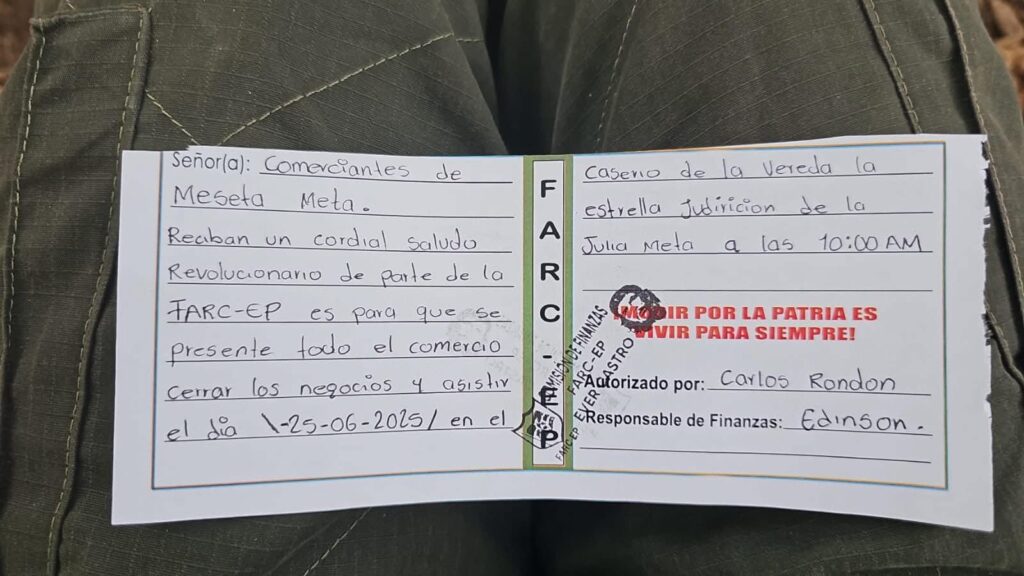 Señor(a): Comerciantes de
Meseta Meta.
Reciban un cordial saludo
Revolucionario de parte de la
FARC-EP es para que se
presente todo el comercio
cerrar los negocios y asistir
el día \-25-06-2025/ en el
FARC-EP
Caserio de la Vereda la
estrella Judiricion de la
Julia Meta a las 10:00 AM
¡MORIR POR LA PATRIA ES
VIVIR PARA SIEMPRE!
Autorizado por: Carlos Rondon
Responsable de Finanzas: Edinson.
COMISION DE FINANZAS
FARC-EP
EVER CASTRO
FARC EP